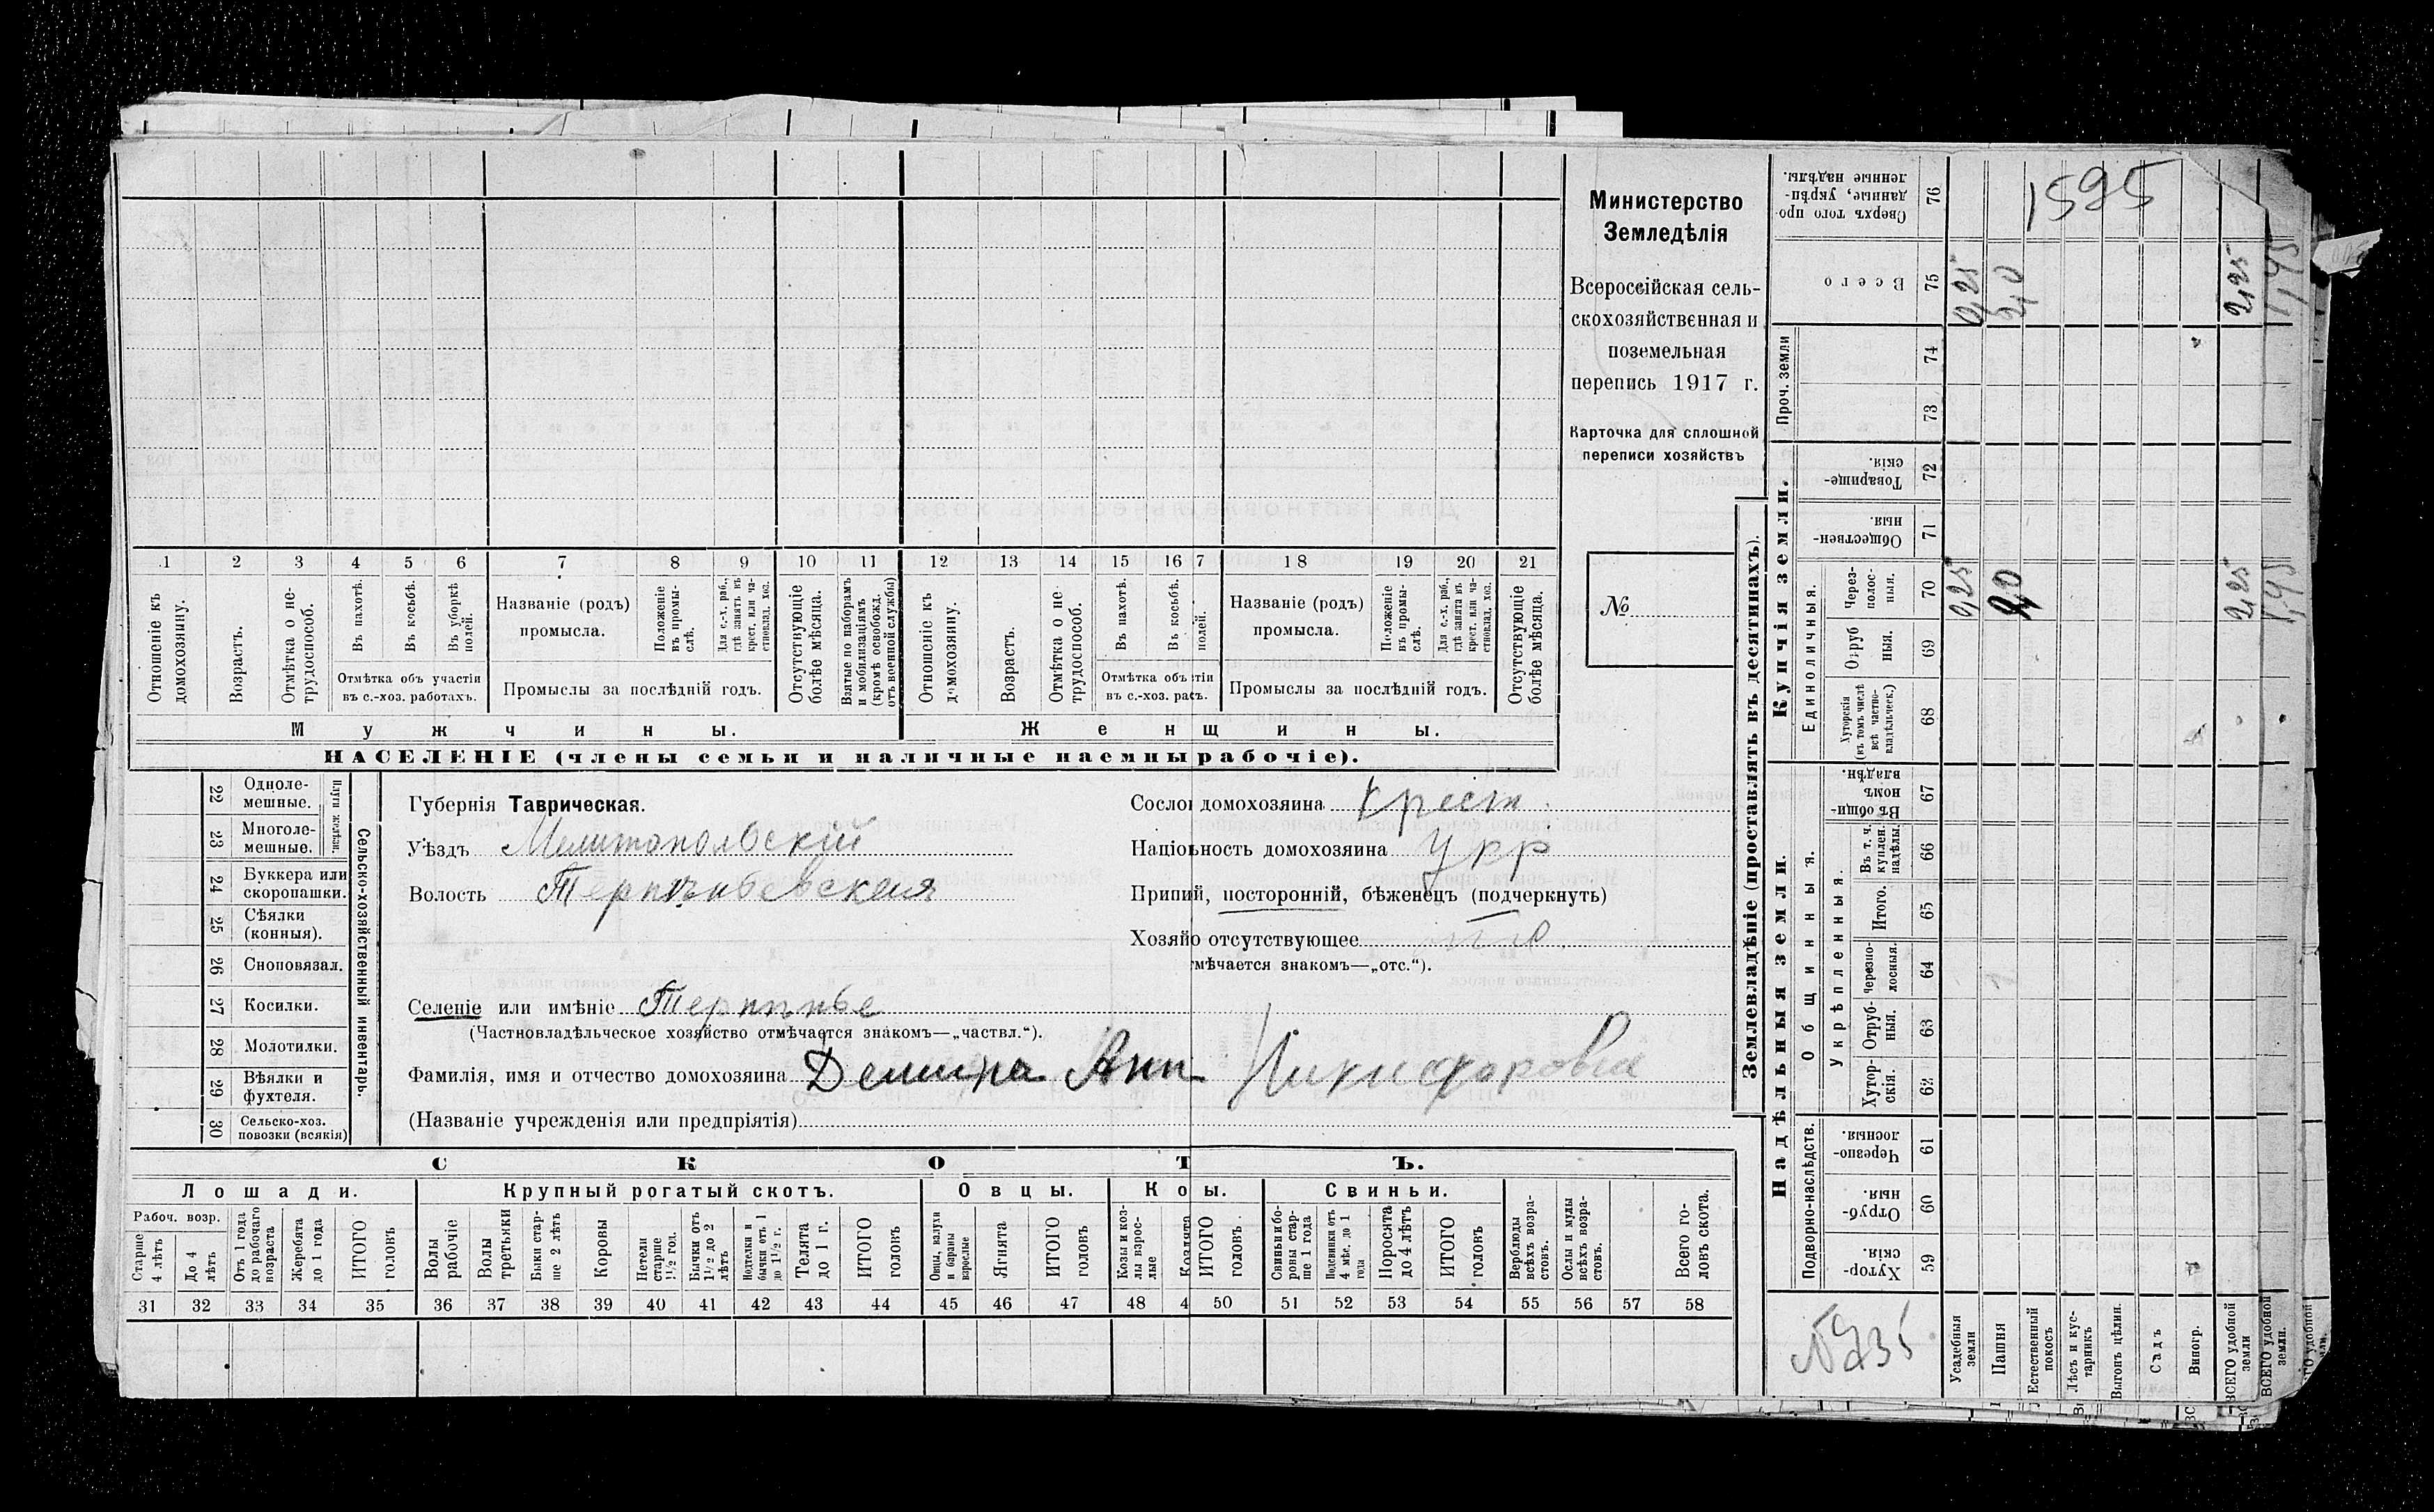 1 2 3 4 5 6 7 8 9 10 11 12 13 14 15 16 7 18 19 20 21
Отношеніе къ домохозяину.
Возрастъ.
Отмѣтка о не-трудоспособ.
Въ пахотѣ.
Въ косьбѣ.
Въ уборкѣ полей.
Отмѣтка объ участіи
въ с.-хоз. работахъ.
Названіе (родъ)
промысла.
Положеніе въ промы-слѣ.
Для с.-х. раб., гдѣ занятъ въ крест. или ча-стновлад. хоз.
Промыслы за послѣдній годъ.
Отсутствующіе болѣе мѣсяца.
Взятые по наборамъ и мобилизаціямъ (кромѣ освобожд. отъ военной службы)
Отношеніе къ домохозяину.
Возрастъ.
Отмѣтка о не-трудоспособ.
Въ пахотѣ.
Въ косьбѣ.
полей.
Отмѣтка объ тіи
въ с.-хоз. расъ.
Названіе (родъ)
промысла.
Положеніе въ промы-слѣ.
Для с.-х. раб., гдѣ занята въ крест. или ча-стновлад. хоз.
Промыслы за послѣдній годъ.
Отсутствующіе болѣе мѣсяца.
Мужчины.
Женщины.
НАСЕЛЕНІЕ (члены семьи и наличные наемны рабочіе).
Министерство
Земледѣлія
Всероссійская сель-
скохозяйственная и
поземельная
перепись 1917 г.
Карточка для сплошной
переписи хозяйствъ
№
22 Одноле-мешные.
23 Многоле-мешные.
Плуги желѣзн.
24 Буккера или скоропашки.
25 Сѣялки (конныя).
26 Сноповязал.
27 Косилки.
28 Молотилки.
29 Вѣялки и фухтеля.
30 Сельско-хоз. повозки (всякія)
Сельско-хозяйственный инвентарь.
Губернія Таврическая.
Уѣздъ Мелитопольскій
Волость Терпѣньевская
Селеніе или имѣніе Терпѣнье
(Частновладѣльческое хозяйство отмѣчается знакомъ—„частвл.“).
Фамилія, имя и отчество домохозяина Никифоровна
(Названіе учрежденія или предпріятія)
Сослоі домохозяина крест.
Націоьность домохозяина Укр
Припий, посторонній, бѣженецъ (подчеркнуть)
Хозяйо отсутствующее
мѣчается знакомъ—„отс.“).
СКОТЪ.
Лошади. Крупный рогатый скотъ. Овцы. Козы. Свиньи.
Рабоч. возр.
Старше 4 лѣтъ
До 4 лѣтъ
Отъ 1 года до рабочаго возраста
Жеребята до 1 года
ИТОГО головъ
Волы рабочіе
Волы третьяки
Быки стар-ше 2 лѣтъ
Коровы
Нетели старше 1½ год.
Бычки отъ 1½ до 2 лѣтъ
Телята до 1 г.
ИТОГО головъ
Овцы, валухи и бараны взрослые
Ягнята
ИТОГО головъ
Козы и коз-лы взрос-лые
Козлята
ИТОГО головъ
Свиньи и бо-ровы стар-ше 1 года
Подсвинки отъ 4 мѣс. до 1 года
Поросята до 4 лѣтъ
ИТОГО головъ
Верблюды всѣхъ возра-стовъ.
Ослы и мулы всѣхъ возра-стовъ.
Всего го-ловъ скота.
31 32 33 34 35 36 37 38 39 40 41 42 43 44 45 46 47 48 4 50 51 52 53 54 55 56 57 58
Землевладѣніе (проставлять въ десятинахъ).
Купчія земли.
Надѣльныя земли.
Проч. земли
Единоличныя.
Общинныя.
Укрѣпленныя.
Подворно-наслѣдств.
Сверхъ того про-данные, укрѣп-ленные надѣлы. 76
1595
Всего 75 0,25 2,0 2,25
74
73
Товарище-скія. 72
Обществен-ныя. 71
Через-полос-ныя. 70 0,25 2,0 2,25
Отруб ныя. 69
Хуторскія (въ томъ числѣ всѣ частно-владѣльческ.) 68
Въ общи-номъ владѣн. 67
Въ т. ч. куплен. надѣлы. 66
Итого. 65
Черезпо-лосныя. 64
Отруб-ныя. 63
Хутор-скія. 62
Черезпо-лосныя 61
Отруб-ныя. 60
Хутор-скія. 59
Усадебныя земли
Пашня
Естественный покосъ
Лѣсъ и кус-тарникъ
Выгонъ цѣлин.
Садъ
Виногр.
ВСЕГО удобной земли
ВСЕГО удобной земли.